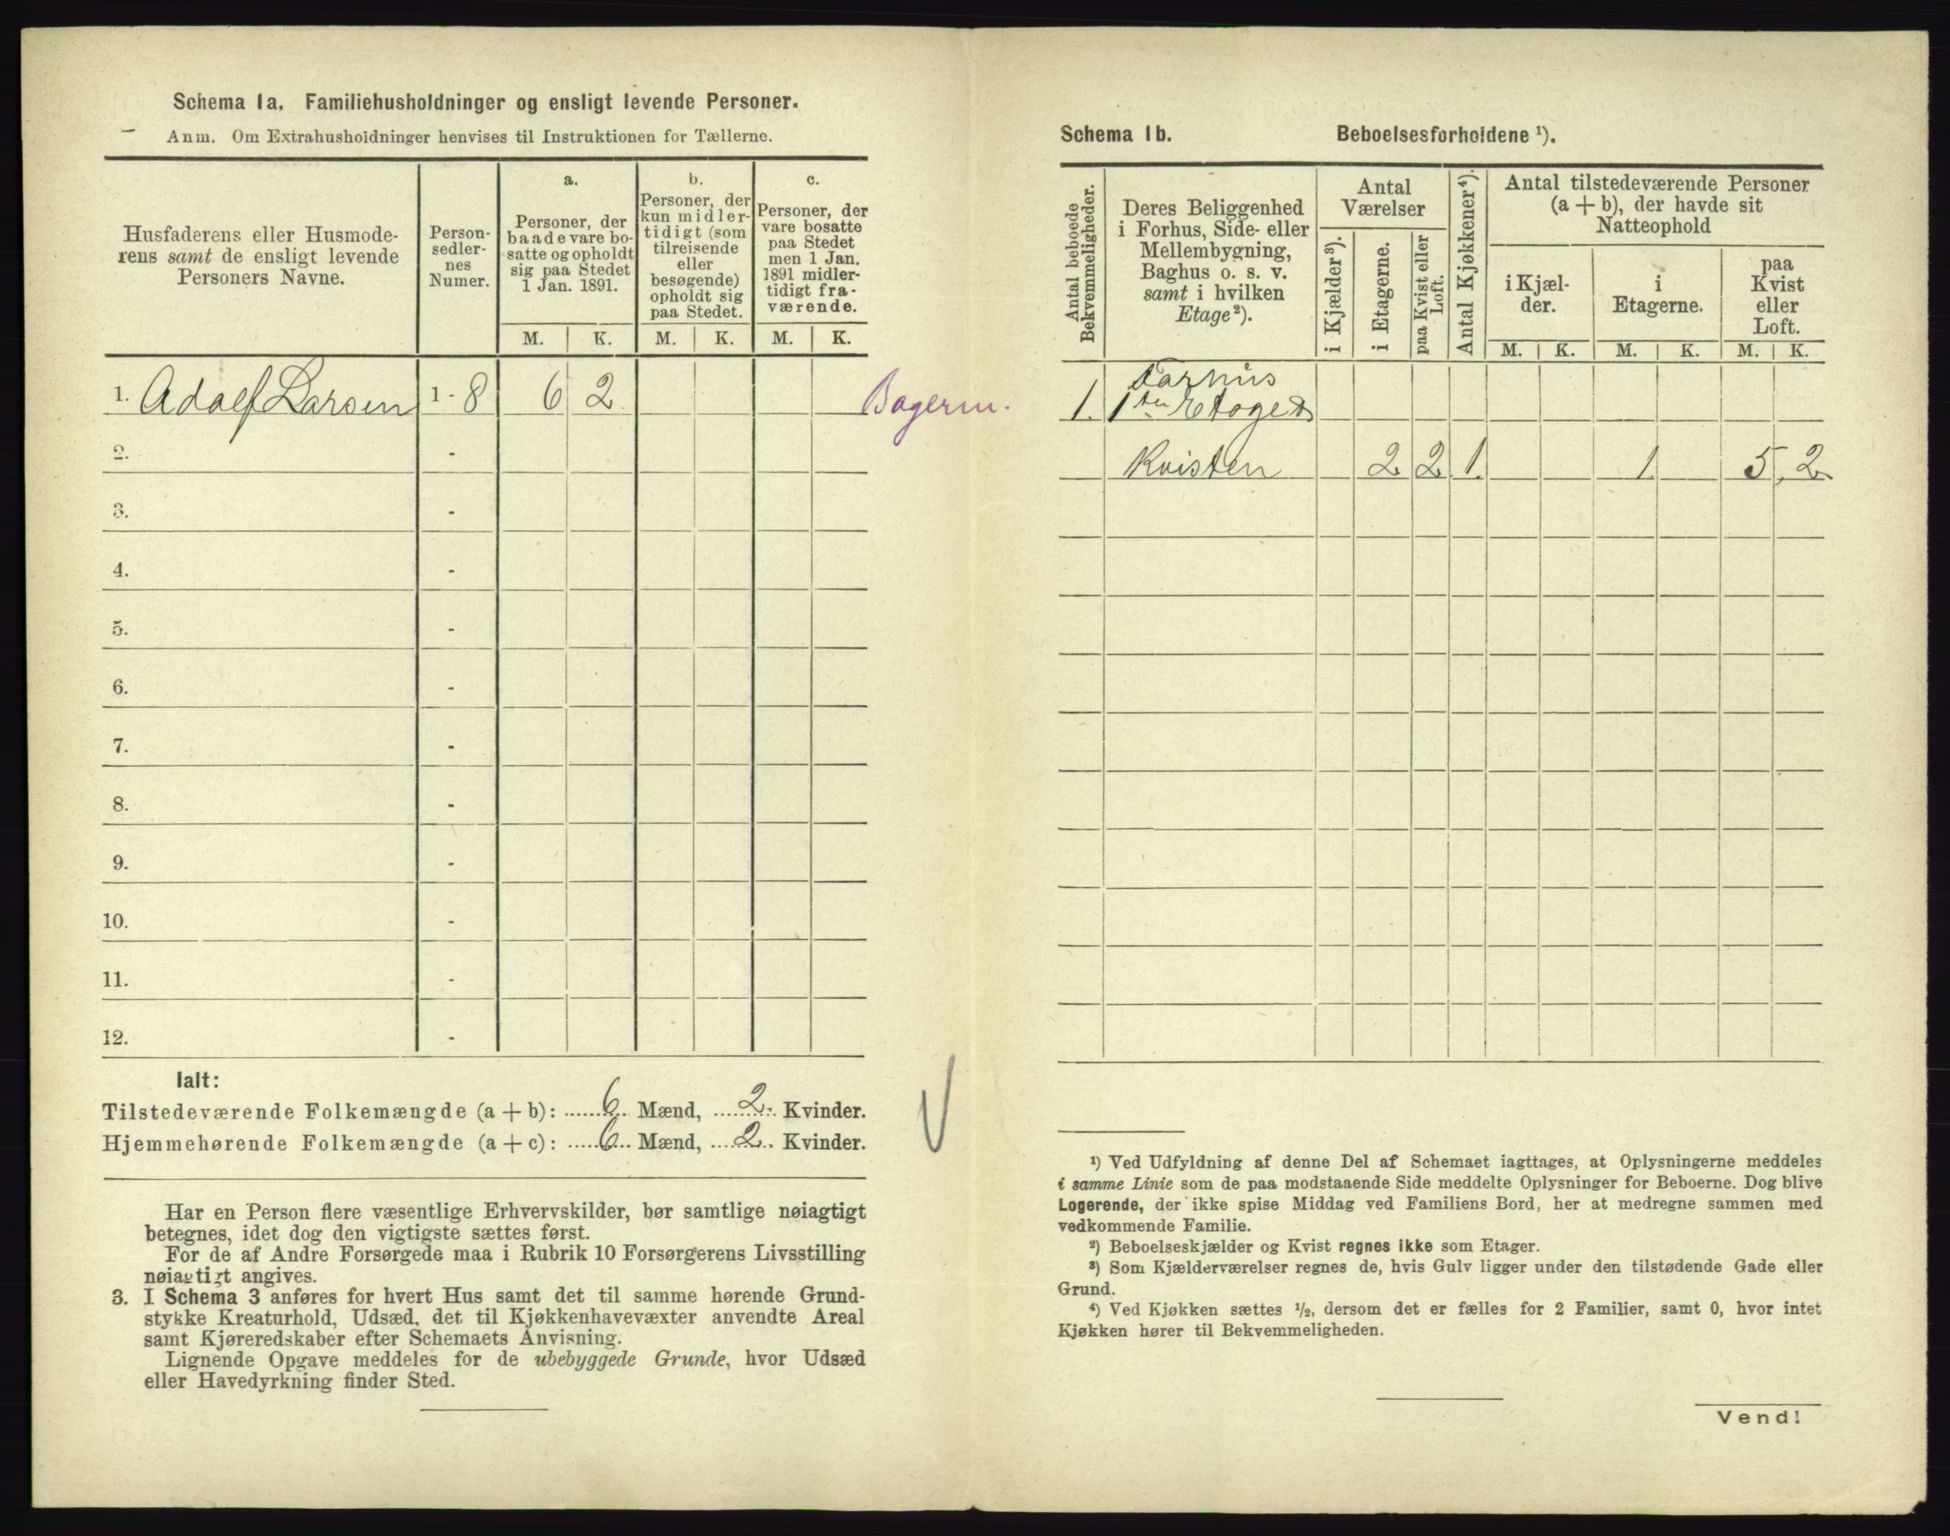 Schema 1a. Familiehusholdninger og ensligt levende Personer.
Anm. Om Extrahusholdninger henvises til Instruktionen for Tællerne.
Husfaderens eller Husmode-
rens samt de ensligt levende
Personers Navne.
Person-
sedler-
nes
Numer.
a.
Personer, der
baade vare bo-
satte og opholdt
sig paa Stedet
1 Jan. 1891.
b.
Personer, der
kun midler-
tidigt (som
tilreisende
eller
besøgende)
opholdt sig
paa Stedet.
c.
Personer, der
vare bosatte
paa Stedet
men 1 Jan.
1891 midler-
tidigt fra-
værende.
M. K. M. K. M. K.
1. Adolf Larsen 1 - 8 6 2 Bagerm.
2. -
3. -
4. -
5. -
6. -
7. -
8. -
9. -
10. -
11. -
12. -
Ialt:
Tilstedeværende Folkemængde (a + b): 6 Mænd, 2 Kvinder.
Hjemmehørende Folkemængde (a + c): 6 Mænd, 2 Kvinder.
Har en Person flere væsentlige Erhvervskilder, bør samtlige nøiagtigt
betegnes, idet dog den vigtigste sættes først.
For de af Andre Forsørgede maa i Rubrik 10 Forsørgerens Livsstilling
nøiagtigt angives.
3. I Schema 3 anføres for hvert Hus samt det til samme hørende Grund-
stykke Kreaturhold, Udsæd, det til Kjøkkenhavevæxter anvendte Areal
samt Kjøreredskaber efter Schemaets Anvisning.
Lignende Opgave meddeles for de ubebyggede Grunde, hvor Udsæd
eller Havedyrkning finder Sted.
Schema 1b. Beboelsesforholdene ¹).
Antal beboede
Bekvemmeligheder.
Deres Beliggenhed
i Forhus, Side- eller
Mellembygning,
Baghus o. s. v.
samt i hvilken
Etage ²).
Antal
Værelser
i Kjælder ³).
i Etagerne.
paa Kvist eller
Loft.
Antal Kjøkkener ⁴).
Antal tilstedeværende Personer
(a + b), der havde sit
Natteophold
i Kjæl-
der.
i
Etagerne.
paa
Kvist
eller
Loft.
M. K. M. K. M. K.
Forhus
1. 1ste Etage &
Kvisten 2 2 1 1 5 2
¹) Ved Udfyldning af denne Del af Schemaet iagttages, at Oplysningerne meddeles
i samme Linie som de paa modstaaende Side meddelte Oplysninger for Beboerne. Dog blive
Logerende, der ikke spise Middag ved Familiens Bord, her at medregne sammen med
vedkommende Familie.
²) Beboelseskjælder og Kvist regnes ikke som Etager.
³) Som Kjælderværelser regnes de, hvis Gulv ligger under den tilstødende Gade eller
Grund.
⁴) Ved Kjøkken sættes ½, dersom det er fælles for 2 Familier, samt 0, hvor intet
Kjøkken hører til Bekvemmeligheden.
Vend!